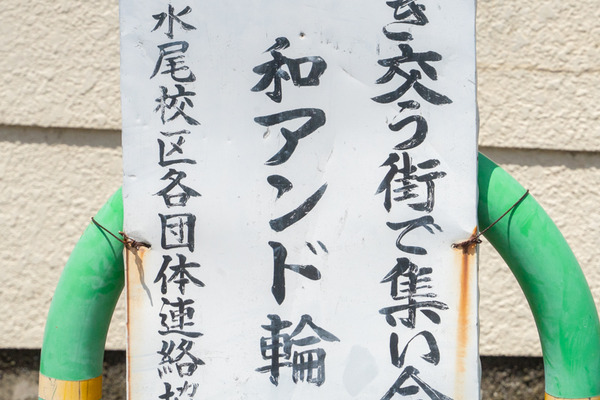 き交う街で集い合
和アンド輪
水尾校区各団体連絡協